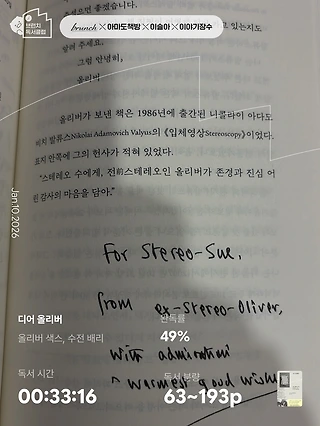 브런치
독서클럽
brunch × 아마도책방 × 이슬아 × 이야기장수
알려 주세요.
그럼 안녕히,
올리버
올리버가 보낸 책은 1986년에 출간된 니콜라이 아다모
비치 발류스Nikolai Adamovich Valyus의 《입체영상Stereoscopy》이었다.
표지 안쪽에 그의 헌사가 적혀 있었다.
“스테레오 수에게, 전前스테레오인 올리버가 존경과 진심 어
린 감사의 마음을 담아.”
Jan 10, 2026
For Stereo-Sue,
from ex-Stereo-Oliver,
디어 올리버
완독률
올리버 색스, 수전 배리
49%
with admiration
독서 시간
독서 분량
& warmest good wishes
00:33:16
63~193p